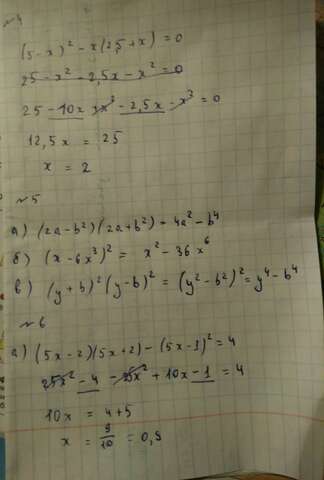 №4
(5-x)² - x(2,5+x) = 0
25 - x² - 2,5x - x² = 0
25 - 10x + x² - 2,5x - x² = 0
12,5x = 25
x = 2
№5
а) (2a-b²)(2a+b²) = 4a² - b⁴
б) (x-6x³)² = x² - 36x⁶
в) (y+b)²(y-b)² = (y²-b²)² = y⁴ - b⁴
№6
а) (5x-2)(5x+2) - (5x-1)² = 4
25x² - 4 - 25x² + 10x - 1 = 4
10x = 4+5
x = 9/10 = 0,9